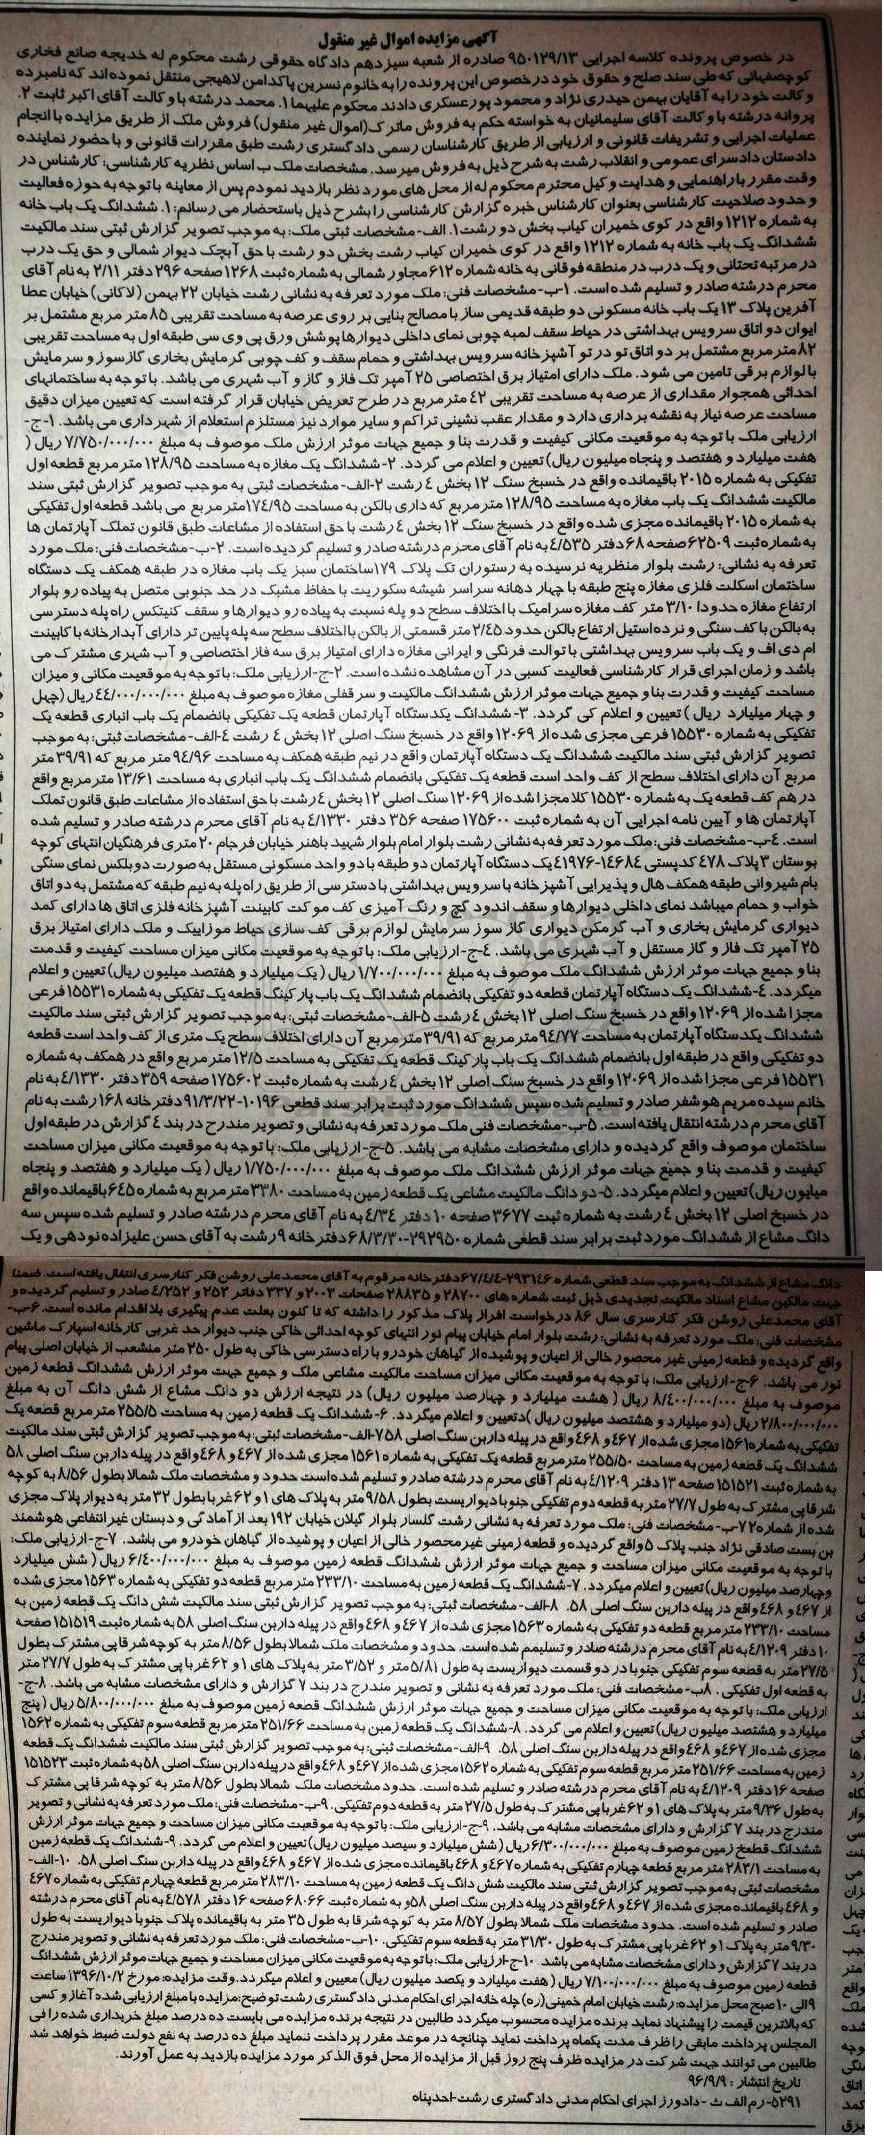 آگهی مزایده اموال غیر منقول
در خصوص پرونده کلاسه اجرایی ۹۵۰۱۲۹/۱۳ صادره از شعبه سیزدهم دادگاه حقوقی رشت محکوم له خدیجه صانع فخاری
کوچصفهانی که طی سند صلح و حقوق خود در خصوص این پرونده را به خانم نسرین پاکدامن لاهیجی منتقل نموده اند که نامبرده
وکالت خود را به آقایان بهمن حیدری نژاد و محمود پورعسکری دادند محکوم علیهما ۱. محمد درشته با وکالت آقای اکبر ثابت ۲.
پروانه درشته با وکالت آقای سلیمانیان به خواسته حکم به فروش ماترک (اموال غیر منقول) فروش ملک از طریق مزایده با انجام
عملیات اجرایی و تشریفات قانونی و ارزیابی از طریق کارشناسان رسمی دادگستری رشت طبق مقررات قانونی و با حضور نماینده
دادستان دادسرای عمومی و انقلاب رشت به شرح ذیل به فروش میرسد. مشخصات ملک ب اساس نظریه کارشناسی: کارشناس در
وقت مقرر با راهنمایی و هدایت وکیل محترم محکوم له از محل های مورد نظر بازدید نمودم پس از معاینه با توجه به حوزه فعالیت
و حدود صلاحیت کارشناسی بعنوان کارشناس خبره گزارش کارشناسی را بشرح ذیل باستحضار می رسانم: ۱. ششدانگ یک باب خانه
به شماره ۱۲۱۲ واقع در کوی خمیران کیاب بخش دو رشت ۱. الف-مشخصات ثبتی ملک: به موجب تصویر گزارش ثبتی سند مالکیت
ششدانگ یک باب خانه به شماره ۱۲۱۲ واقع در کوی خمیران کیاب رشت بخش دو رشت با حق آبچک دیوار شمالی و حق یک درب
در مرتبه تحتانی و یک درب در منطقه فوقانی به خانه شماره ۶۱۲ مجاور شمالی به شماره ثبت ۱۲۶۸ صفحه ۲۹۶ دفتر ۲/۱۱ به نام آقای
محرم درشته صادر و تسلیم شده است. ۱-ب-مشخصات فنی: ملک مورد تعرفه به نشانی رشت خیابان ۲۲ بهمن (لاکانی) خیابان عطا
آفرین پلاک ۱۳ یک باب خانه مسکونی دو طبقه قدیمی ساز با مصالح بنایی بر روی عرصه به مساحت تقریبی ۸۵ متر مربع مشتمل بر
ایوان دو اتاق سرویس بهداشتی در حیاط سقف لمبه چوبی نمای داخلی دیوارها پوشش ورق پی وی سی طبقه اول به مساحت تقریبی
۸۲ متر مربع مشتمل بر دو اتاق تو در تو آشپزخانه سرویس بهداشتی و حمام سقف و کف چوبی گرمایش بخاری گازسوز و سرمایش
با لوازم برقی تامین می شود. ملک دارای امتیاز برق اختصاصی ۲۵ آمپر تک فاز و گاز و آب شهری می باشد. با توجه به ساختمانهای
احداثی همجوار مقداری از عرصه به مساحت تقریبی ۴۲ متر مربع در طرح تعریض خیابان قرار گرفته است که تعیین میزان دقیق
مساحت عرصه نیاز به نقشه برداری دارد و مقدار عقب نشینی تراکم و سایر موارد نیز مستلزم استعلام از شهرداری می باشد. ۱-ج-
ارزیابی ملک با توجه به موقعیت مکانی کیفیت و قدرت بنا و جمیع جهات موثر ارزش ملک موصوف به مبلغ ۷/۷۵۰/۰۰۰/۰۰۰ ریال (
هفت میلیارد و هفتصد و پنجاه میلیون ریال) تعیین و اعلام می گردد. ۲-ششدانگ یک مغازه به مساحت ۱۲۸/۹۵ متر مربع قطعه اول
تفکیکی به شماره ۲۰۱۵ باقیمانده واقع در خسبخ سنگ ۱۲ بخش ۴ رشت ۲-الف-مشخصات ثبتی به موجب تصویر گزارش ثبتی سند
مالکیت ششدانگ یک باب مغازه به مساحت ۱۲۸/۹۵ متر مربع که داری بالکن به مساحت ۱۷۴/۹۵ متر مربع می باشد قطعه اول تفکیکی
به شماره ۲۰۱۵ باقیمانده مجزی شده واقع در خسبخ سنگ ۱۲ بخش ۴ رشت با حق استفاده از مشاعات طبق قانون تملک آپارتمان ها
به شماره ثبت ۶۲۵۰۹ صفحه ۶۸ دفتر ۴/۵۳۵ به نام آقای محرم درشته صادر و تسلیم گردیده است. ۲-ب-مشخصات فنی: ملک مورد
تعرفه به نشانی: رشت بلوار منظریه نرسیده به رستوران تک پلاک ۱۷۹ ساختمان سبز یک باب مغازه در طبقه همکف یک دستگاه
ساختمان اسکلت فلزی مغازه پنج طبقه با چهار دهانه سراسر شیشه سکوریت با حفاظ مشبک در حد جنوبی متصل به پیاده رو بلوار
ارتفاع مغازه حدودا ۳/۱۰ متر کف مغازه سرامیک با اختلاف سطح دو پله نسبت به پیاده رو دیوارها و سقف کنیتکس راه پله دسترسی
به بالکن با کف سنگی و نرده استیل ارتفاع بالکن حدود ۲/۴۵ متر قسمتی از بالکن با اختلاف سطح سه پله پایین تر دارای آبدارخانه با کابینت
ام دی اف و یک باب سرویس بهداشتی با توالت فرنگی و ایرانی مغازه دارای امتیاز برق سه فاز اختصاصی و آب شهری مشترک می
باشد و زمان اجرای قرار کارشناسی فعالیت کسبی در آن مشاهده نشده است. ۲-ج-ارزیابی ملک: با توجه به موقعیت مکانی و میزان
مساحت کیفیت و قدرت بنا و جمیع جهات موثر ارزش ششدانگ مالکیت و سرقفلی مغازه موصوف به مبلغ ۴۴/۰۰۰/۰۰۰/۰۰۰ ریال (چهل
و چهار میلیارد ریال) تعیین و اعلام کی گردد. ۳-ششدانگ یکدستگاه آپارتمان قطعه یک تفکیکی بانضمام یک باب انباری قطعه یک
تفکیکی به شماره ۱۵۵۳۰ فرعی مجزی شده از ۱۲۰۶۹ واقع در خسبخ سنگ اصلی ۱۲ بخش ۴ رشت ۴-الف-مشخصات ثبتی: به موجب
تصویر گزارش ثبتی سند مالکیت ششدانگ یک دستگاه آپارتمان واقع در نیم طبقه همکف به مساحت ۹۴/۹۶ متر مربع که ۳۹/۹۱ متر
مربع آن دارای اختلاف سطح از کف واحد است قطعه یک تفکیکی بانضمام ششدانگ یک باب انباری به مساحت ۱۳/۶۱ متر مربع واقع
در هم کف قطعه یک به شماره ۱۵۵۳۰ کلا مجزا شده از ۱۲۰۶۹ سنگ اصلی ۱۲ بخش ۴ رشت با حق استفاده از مشاعات طبق قانون تملک
آپارتمان ها و آیین نامه اجرایی آن به شماره ثبت ۱۷۵۶۰۰ صفحه ۳۵۶ دفتر ۴/۱۳۳۰ به نام آقای محرم درشته صادر و تسلیم شده
است. ۴-ب-مشخصات فنی: ملک مورد تعرفه به نشانی رشت بلوار امام بلوار شهید باهنر خیابان فرجام ۲۰ متری فرهنگیان انتهای کوچه
بوستان ۳ پلاک ۴۷۸ کدپستی ۱۴۶۸۴-۴۱۹۷۶ یک دستگاه آپارتمان دو طبقه با دو واحد مسکونی مستقل به صورت دوبلکس نمای سنگی
بام شیروانی طبقه همکف هال و پذیرایی آشپزخانه با سرویس بهداشتی با دسترسی از طریق راه پله به نیم طبقه که مشتمل به دو اتاق
خواب و حمام میباشد نمای داخلی دیوارها و سقف اندود گچ و رنگ آمیزی کف موکت کابینت آشپزخانه فلزی اتاق ها دارای کمد
دیواری گرمایش بخاری و آب گرمکن دیواری گاز سوز سرمایش لوازم برقی کف سازی حیاط موزاییک و ملک دارای امتیاز برق
۲۵ آمپر تک فاز و گاز مستقل و آب شهری می باشد. ۴-ج-ارزیابی ملک: با توجه به موقعیت مکانی میزان مساحت کیفیت و قدمت
بنا و جمیع جهات موثر ارزش ششدانگ ملک موصوف به مبلغ ۱/۷۰۰/۰۰۰/۰۰۰ ریال (یک میلیارد و هفتصد میلیون ریال) تعیین و اعلام
میگردد. ۴-ششدانگ یک دستگاه آپارتمان قطعه دو تفکیکی بانضمام ششدانگ یک باب پارکینگ قطعه یک تفکیکی به شماره ۱۵۵۳۱ فرعی
مجزا شده از ۱۲۰۶۹ واقع در خسبخ سنگ اصلی ۱۲ بخش ۴ رشت ۵-الف-مشخصات ثبتی: به موجب تصویر گزارش ثبتی سند مالکیت
ششدانگ یکدستگاه آپارتمان به مساحت ۹۴/۷۷ متر مربع که ۳۹/۹۱ متر مربع آن دارای اختلاف سطح یک متری از کف واحد است قطعه
دو تفکیکی واقع در طبقه اول بانضمام ششدانگ یک باب پارکینگ قطعه یک تفکیکی به مساحت ۱۲/۵ متر مربع واقع در همکف به شماره
۱۵۵۳۱ فرعی مجزا شده از ۱۲۰۶۹ واقع در خسبخ سنگ اصلی ۱۲ بخش ۴ رشت به شماره ثبت ۱۷۵۶۰۲ صفحه ۳۵۹ دفتر ۴/۱۳۳۰ به نام
خانم سیده مریم هوشفر صادر و تسلیم شده سپس ششدانگ مورد ثبت برابر سند قطعی ۱۰۱۹۶-۹۱/۳/۲۲ دفترخانه ۱۶۸ رشت به نام
آقای محرم درشته انتقال یافته است. ۵-ب-مشخصات فنی ملک مورد تعرفه به نشانی و تصویر مندرج در بند ۴ گزارش در طبقه اول
ساختمان موصوف واقع گردیده و دارای مشخصات مشابه می باشد. ۵-ج-ارزیابی ملک: با توجه به موقعیت مکانی میزان مساحت
کیفیت و قدمت بنا و جمیع جهات موثر ارزش ششدانگ ملک موصوف به مبلغ ۱/۷۵۰/۰۰۰/۰۰۰ ریال (یک میلیارد و هفتصد و پنجاه
میلیون ریال) تعیین و اعلام میگردد. ۵-دو دانگ مالکیت مشاعی یک قطعه زمین به مساحت ۳۳۸۰ متر مربع به شماره ۶۴۵ باقیمانده واقع
در خسبخ اصلی ۱۲ بخش ۴ رشت به شماره ثبت ۳۶۷۷ صفحه ۱۰ دفتر ۴/۳۴ به نام آقای محرم درشته صادر و تسلیم شده سپس سه
دانگ مشاع از ششدانگ مورد ثبت برابر سند قطعی شماره ۲۹۲۹۵۰-۶۸/۳/۳۰ دفترخانه ۹ رشت به آقای حسن علیزاده نودهی و یک
دانگ مشاع از ششدانگ به موجب سند قطعی شماره ۲۹۳۱۴۶-۶۷/۴/۴ دفترخانه مرقوم به آقای محمدعلی روشن فکر کنارسری انتقال یافته است. ضمنا
جهت مالکین مشاع اسناد مالکیت تجدیدی ذیل ثبت شماره های ۲۸۷۰۰ و ۲۸۸۳۵ صفحات ۲۰۰۳ و ۳۳۷ دفاتر ۲۵۳ و ۴/۲۵۲ صادر و تسلیم گردیده و
آقای محمدعلی روشن فکر کنارسری سال ۸۶ درخواست افراز پلاک مذکور را داشته که تا کنون بعلت عدم پیگیری بلااقدام مانده است. ۶-ب-
مشخصات فنی: ملک مورد تعرفه به نشانی: رشت بلوار امام خیابان پیام نور انتهای کوچه احداثی خاکی جنب دیوار حد غربی کارخانه اسپارک ماشین
واقع گردیده و قطعه زمینی غیر محصور خالی از اعیان و پوشیده از گیاهان خودرو با راه دسترسی خاکی به طول ۲۵۰ متر منشعب از خیابان اصلی پیام
نور می باشد. ۶-ج-ارزیابی ملک: با توجه به موقعیت مکانی میزان مساحت مالکیت مشاعی ملک و جمیع جهت موثر ارزش ششدانگ قطعه زمین
موصوف به مبلغ ۸/۴۰۰/۰۰۰/۰۰۰ ریال (هشت میلیارد و چهارصد میلیون ریال) در نتیجه ارزش دو دانگ مشاع از شش دانگ آن به مبلغ
۲/۸۰۰/۰۰۰/۰۰۰ ریال (دو میلیارد و هشتصد میلیون ریال) دتعیین و اعلام میگردد. ۶-ششدانگ یک قطعه زمین به مساحت ۲۵۵/۵ متر مربع قطعه یک
تفکیکی به شماره ۱۵۶۱ مجزی شده از ۴۶۷ و ۴۶۸ واقع در پیله داربن سنگ اصلی ۵۸ ۷-الف-مشخصات ثبتی: به موجب تصویر گزارش ثبتی سند مالکیت
ششدانگ یک قطعه زمین به مساحت ۲۵۵/۵۰ متر مربع قطعه یک تفکیکی به شماره ۱۵۶۱ مجزی شده از ۴۶۷ و ۴۶۸ واقع در پیله داربن سنگ اصلی ۵۸
به شماره ثبت ۱۵۱۵۲۱ صفحه ۱۳ دفتر ۴/۱۲۰۹ به نام آقای محرم درشته صادر و تسلیم شده است حدود و مشخصات ملک شمالا بطول ۸/۵۶ به کوچه
شرقا پی مشترک به طول ۲۷/۷ متر به قطعه دوم تفکیکی جنوبا دیواریست بطول ۹/۵۸ متر به پلاک های ۱ و ۶۲ غربا بطول ۳۲ متر به دیوار پلاک مجزی
شده از شماره ۲ ۷-ب-مشخصات فنی: ملک مورد تعرفه به نشانی رشت گلسار بلوار گیلان خیابان ۱۹۲ بعد از آمادگی و دبستان غیر انتفاعی هوشمند
بن بست صادقی نژاد جنب پلاک ۵ واقع گردیده و قطعه زمینی غیرمحصور خالی از اعیان و پوشیده از گیاهان خودرو می باشد. ۷-ج-ارزیابی ملک:
با توجه به موقعیت مکانی میزان مساحت و جمیع جهات موثر ارزش ششدانگ قطعه زمین موصوف به مبلغ ۶/۴۰۰/۰۰۰/۰۰۰ ریال (شش میلیارد
وچهارصد میلیون ریال) تعیین و اعلام میگردد. ۷-ششدانگ یک قطعه زمین به مساحت ۲۳۳/۱۰ متر مربع قطعه دو تفکیکی به شماره ۱۵۶۳ مجزی شده
از ۴۶۷ و ۴۶۸ واقع در پیله داربن سنگ اصلی ۵۸. ۸-الف-مشخصات ثبتی: به موجب تصویر گزارش ثبتی سند مالکیت شش دانگ یک قطعه زمین به
مساحت ۲۳۳/۱۰ متر مربع قطعه دو تفکیکی به شماره ۱۵۶۳ مجزی شده از ۴۶۷ و ۴۶۸ واقع در پیله داربن سنگ اصلی ۵۸ به شماره ثبت ۱۵۱۵۱۹ صفحه
۱۰ دفتر ۴/۱۲۰۹ به نام آقای محرم درشته صادر و تسلیمم شده است. حدود و مشخصات ملک شمالا بطول ۸/۵۶ متر به کوچه شرقا پی مشترک بطول
۲۷/۵ متر به قطعه سوم تفکیکی جنوبا در دو قسمت دیواریست به طول ۵/۸۱ متر و ۳/۵۲ متر به پلاک های ۱ و ۶۲ غربا پی مشترک به طول ۲۷/۷ متر
به قطعه اول تفکیکی. ۸ب-مشخصات فنی: ملک مورد تعرفه به نشانی و تصویر مندرج در بند ۷ گزارش و دارای مشخصات مشابه می باشد. ۸-ج-
ارزیابی ملک: با توجه به موقعیت مکانی میزان مساحت و جمیع جهات موثر ارزش ششدانگ قطعه زمین موصوف به مبلغ ۵/۸۰۰/۰۰۰/۰۰۰ ریال (پنج
میلیارد و هشتصد میلیون ریال) تعیین و اعلام می گردد. ۸-ششدانگ یک قطعه زمین به مساحت ۲۵۱/۶۶ متر مربع قطعه سوم تفکیکی به شماره ۱۵۶۲
مجزی شده از ۴۶۷ و ۴۶۸ واقع در پیله داربن سنگ اصلی ۵۸. ۹-الف-مشخصات ثبتی: به موجب تصویر گزارش ثبتی سند مالکیت ششدانگ یک قطعه
زمین به مساحت ۲۵۱/۶۶ متر مربع قطعه سوم تفکیکی به شماره ۱۵۶۲ مجزی شده از ۴۶۷ و ۴۶۸ واقع در پیله داربن سنگ اصلی ۵۸ به شماره ثبت ۱۵۱۵۲۳
صفحه ۱۶ دفتر ۴/۱۲۰۹ به نام آقای محرم درشته صادر و تسلیم شده است. حدود مشخصات ملک شمالا بطول ۸/۵۶ متر به کوچه شرقا پی مشترک
به طول ۹/۳۶ متر به پلاک های ۱ و ۶۲ غربا پی مشترک به طول ۲۷/۵ متر به قطعه دوم تفکیکی. ۹-ب-مشخصات فنی: ملک مورد تعرفه به نشانی و تصویر
مندرج در بند ۷ گزارش و دارای مشخصات مشابه می باشد. ۹-ج-ارزیابی ملک: با توجه به موقعیت مکانی میزان مساحت و جمیع جهات موثر ارزش
ششدانگ قطعخ زمین موصوف به مبلغ ۶/۳۰۰/۰۰۰/۰۰۰ ریال (شش میلیارد و سیصد میلیون ریال) تعیین و اعلام می گردد. ۹-ششدانگ یک قطعه زمین
به مساحت ۲۸۳/۱ متر مربع قطعه چهارم تفکیکی به شماره ۴۶۷ و ۴۶۸ باقیمانده مجزی شده از ۴۶۷ و ۴۶۸ واقع در پیله داربن سنگ اصلی ۵۸. ۱۰-الف-
مشخصات ثبتی به موجب تصویر گزارش ثبتی سند مالکیت شش دانگ یک قطعه زمین به مساحت ۲۸۳/۱۰ متر مربع قطعه چهارم تفکیکی به شماره ۴۶۷
و ۴۶۸ باقیمانده مجزی شده از ۴۶۷ و ۴۶۸ واقع در پیله داربن سنگ اصلی ۵۸ و به شماره ثبت ۶۸۰۶۶ صفحه ۱۶ دفتر ۴/۵۷۸ به نام آقای محرم درشته
صادر و تسلیم شده است. حدود مشخصات ملک شمالا بطول ۸/۵۷ متر به کوچه شرقا به طول ۳۵ متر به باقیمانده پلاک جنوبا دیواریست به طول
۹/۳۰ متر به پلاک ۱ و ۶۲ غربا پی مشترک به طول ۳۱/۳۰ متر به قطعه سوم تفکیکی. ۱۰-ب-مشخصات فنی: ملک مورد تعرفه به نشانی و تصویر مندرج
در بند ۷ گزارش و دارای مشخصات مشابه می باشد. ۱۰-ج-ارزیابی ملک: با توجه به موقعیت مکانی میزان مساحت و جمیع جهات موثر ارزش ششدانگ
قطعه زمین موصوف به مبلغ ۷/۱۰۰/۰۰۰/۰۰۰ ریال (هفت میلیارد و یکصد میلیون ریال) معیین و اعلام میگردد. وقت مزایده: مورخ ۱۳۹۶/۱۰/۲ ساعت
۹ الی ۱۰ صبح محل مزایده: رشت خیابان امام خمینی(ره) چله خانه اجرای احکام مدنی دادگستری رشت توضیح: مزایده با مبلغ ارزیابی شده آغاز و کسی
که بالاترین قیمت را پیشنهاد نماید برنده مزایده محسوب میگردد طالبین در نتیجه برنده مزایده می بایست ده درصد مبلغ خریداری شده را فی
المجلس پرداخت مابقی را ظرف مدت یکماه پرداخت نماید چنانچه در موعد مقرر پرداخت ننماید مبلغ ده درصد به نفع دولت ضبط خواهد شد
طالبین می توانند جهت شرکت در مزایده ظرف پنج روز قبل از مزایده از محل فوق الذکر مورد مزایده بازدید به عمل آورند.
تاریخ انتشار: ۹۶/۹/۹
۵۲۹۱-رم الف ث -دادورز اجرای احکام مدنی دادگستری رشت-احدپناه